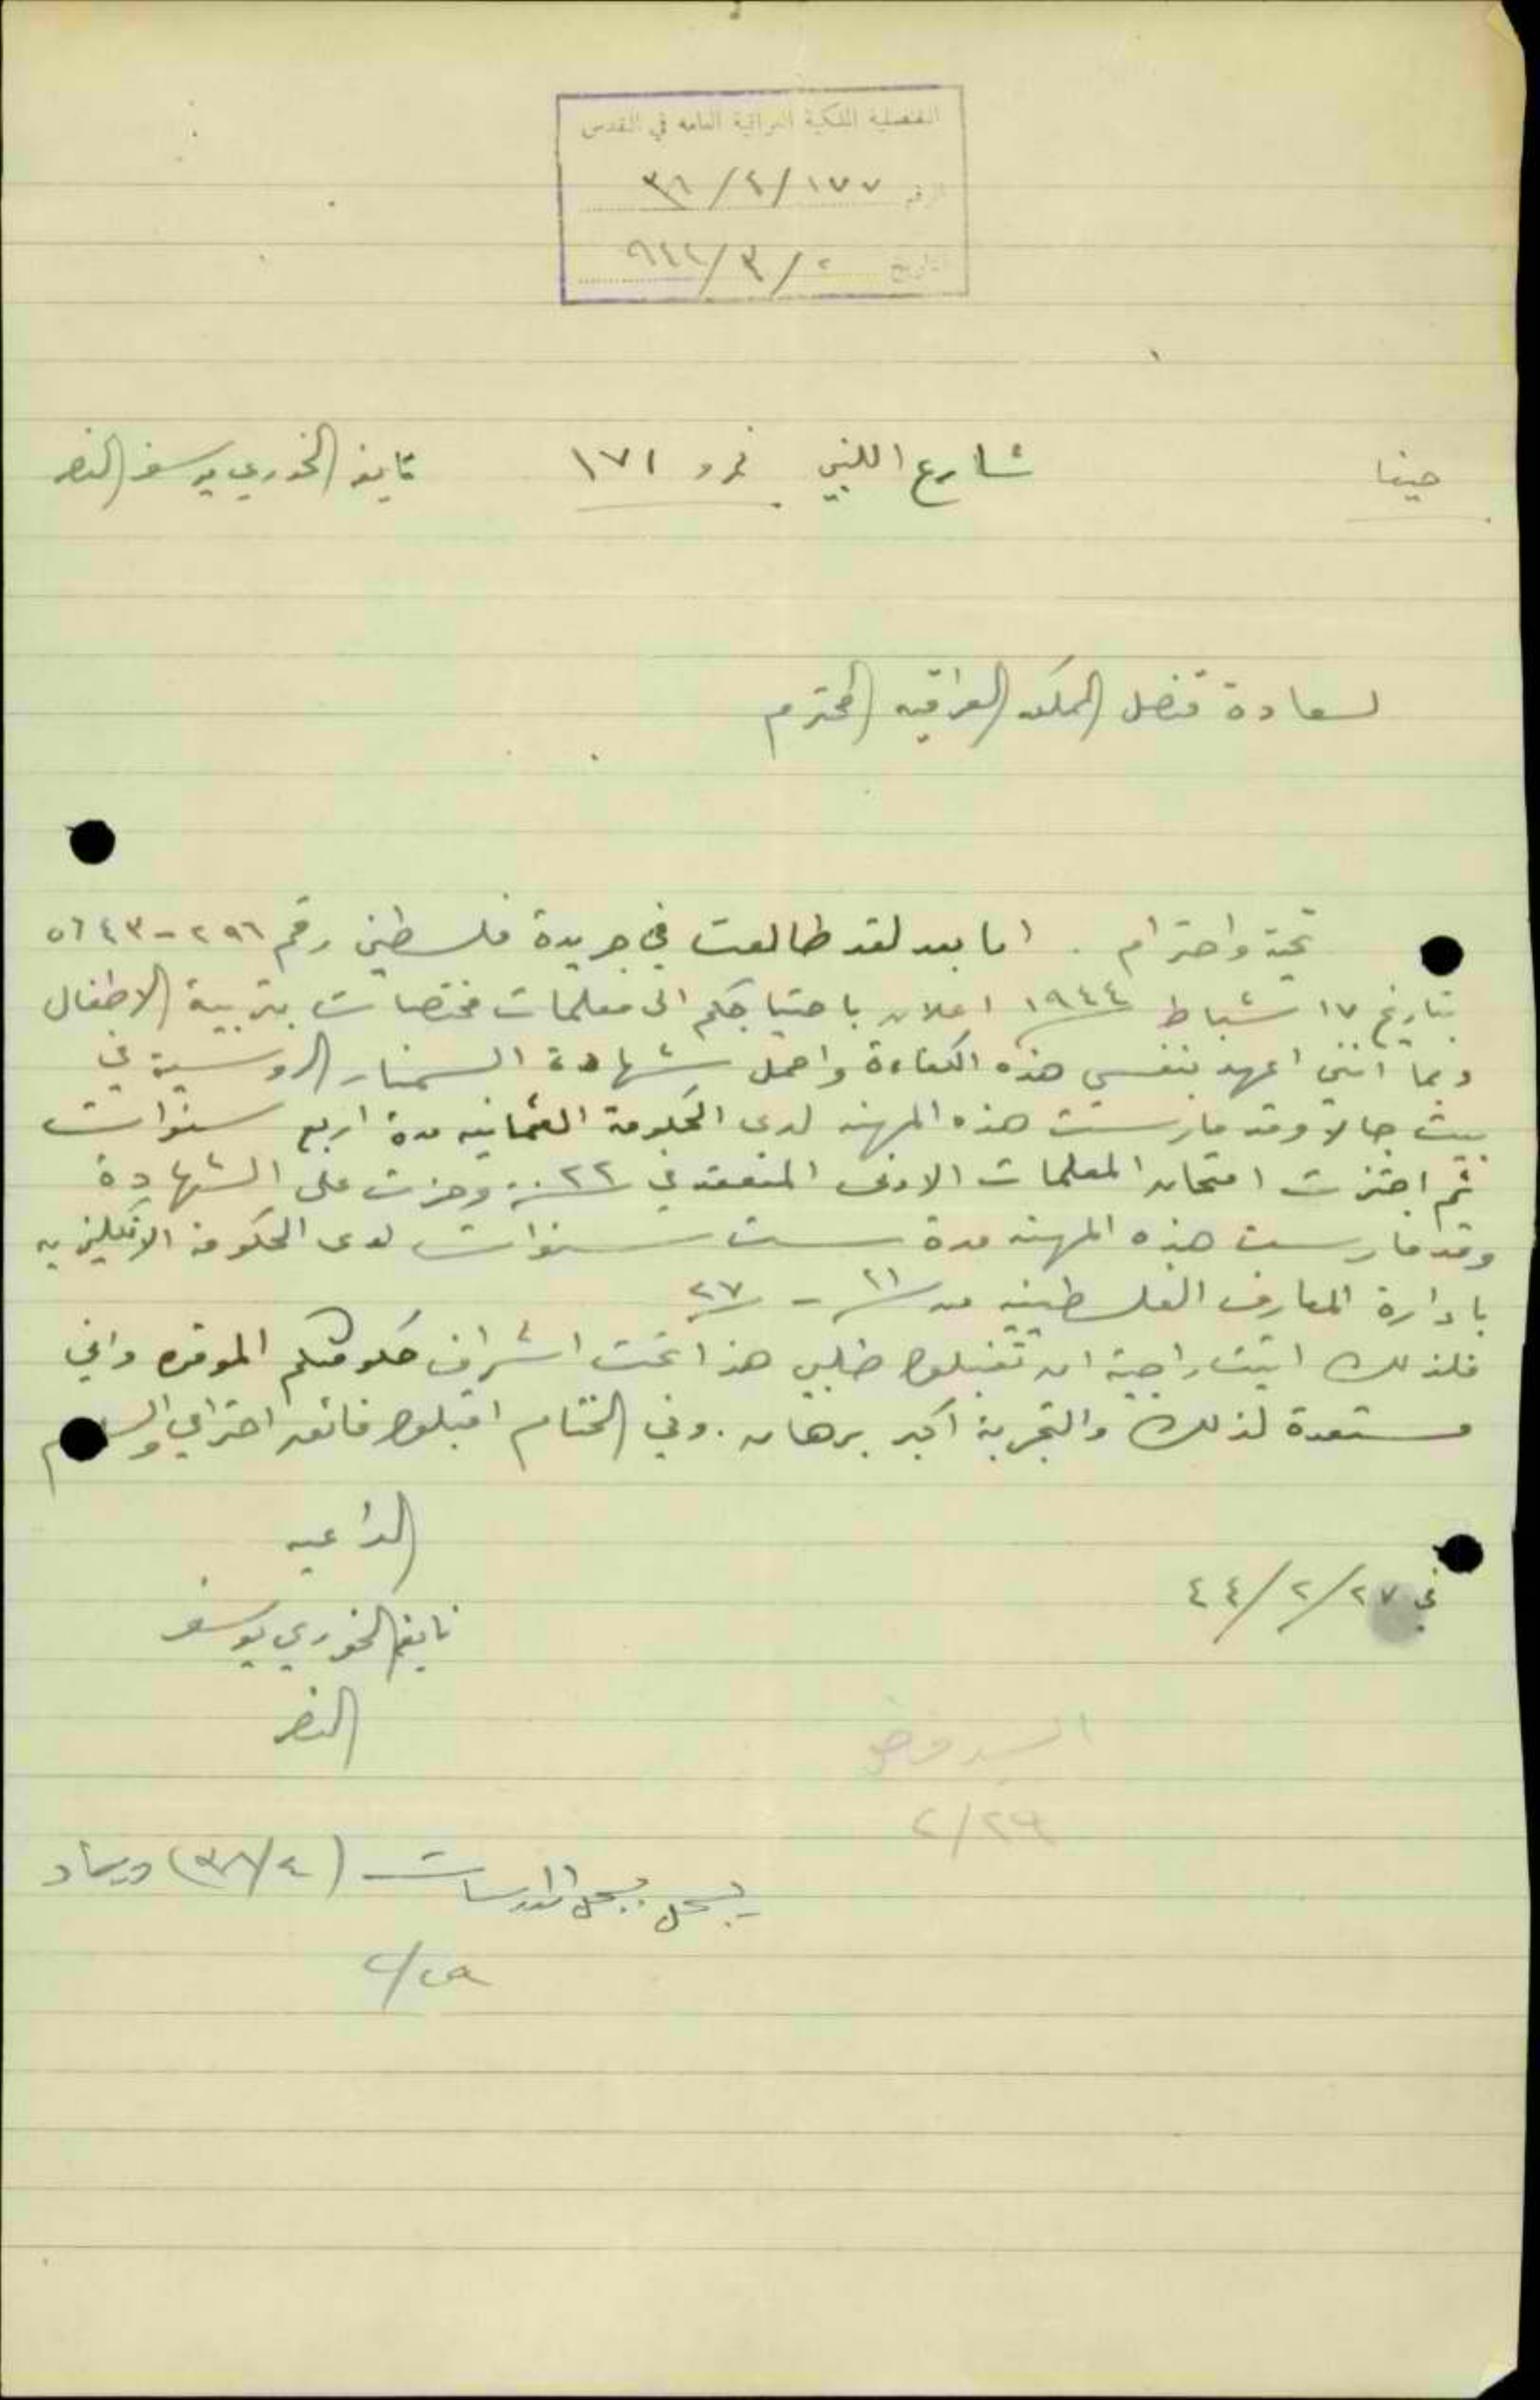 القنصلية الملكية العراقية العامه في القدس
الرقم ٣٦/٤/١٧٧
التاريخ ٩٤٤/٣/٢
حيفا شارع اللنبي نمرو ١٧١ نايفه الخوري يوسف النصر
لسعادة قنصل المملكه العراقيه المحترم
تحية واحترام . اما بعد لقد طالعت في جريدة فلسطين رقم ٢٩٦-٥٦٤٣
بتاريخ ١٧ شباط ١٩٤٤ اعلان باحتياجكم الى معلمات مختصات بتربية الاطفال
وبما انني اعهد بنفسي هذه الكفاءة واحمل شهادة السمنار الروسية في
بيت جالا وقد مارست هذه المهنه لدى الحكومة العثمانيه مدة اربع سنوات
ثم اجتزت امتحان المعلمات الادنى المنعقد في ٢٢ وحزت على الشهادة
وقد مارست هذه المهنه مدة ست سنوات لدى الحكومة الانكليزيه
بادارة المعارف الفلسطينيه من ٢١ - ٢٧
فلذلك اتيت راجية ان تقبلوا طلبي هذا تحت اشراف حكومتكم الموقره واني
مستعدة لذلك والتجربة اكبر برهان . وفي الختام اقبلوا فائق احترامي والسلام
الداعيه
في ٤٤/٢/٢٧
نايفه الخوري يوسف
النصر
السيد
٢/٢٩
يسجل بسجل المدرسات (٣٨/٤) ويعاد
٢/٢٩